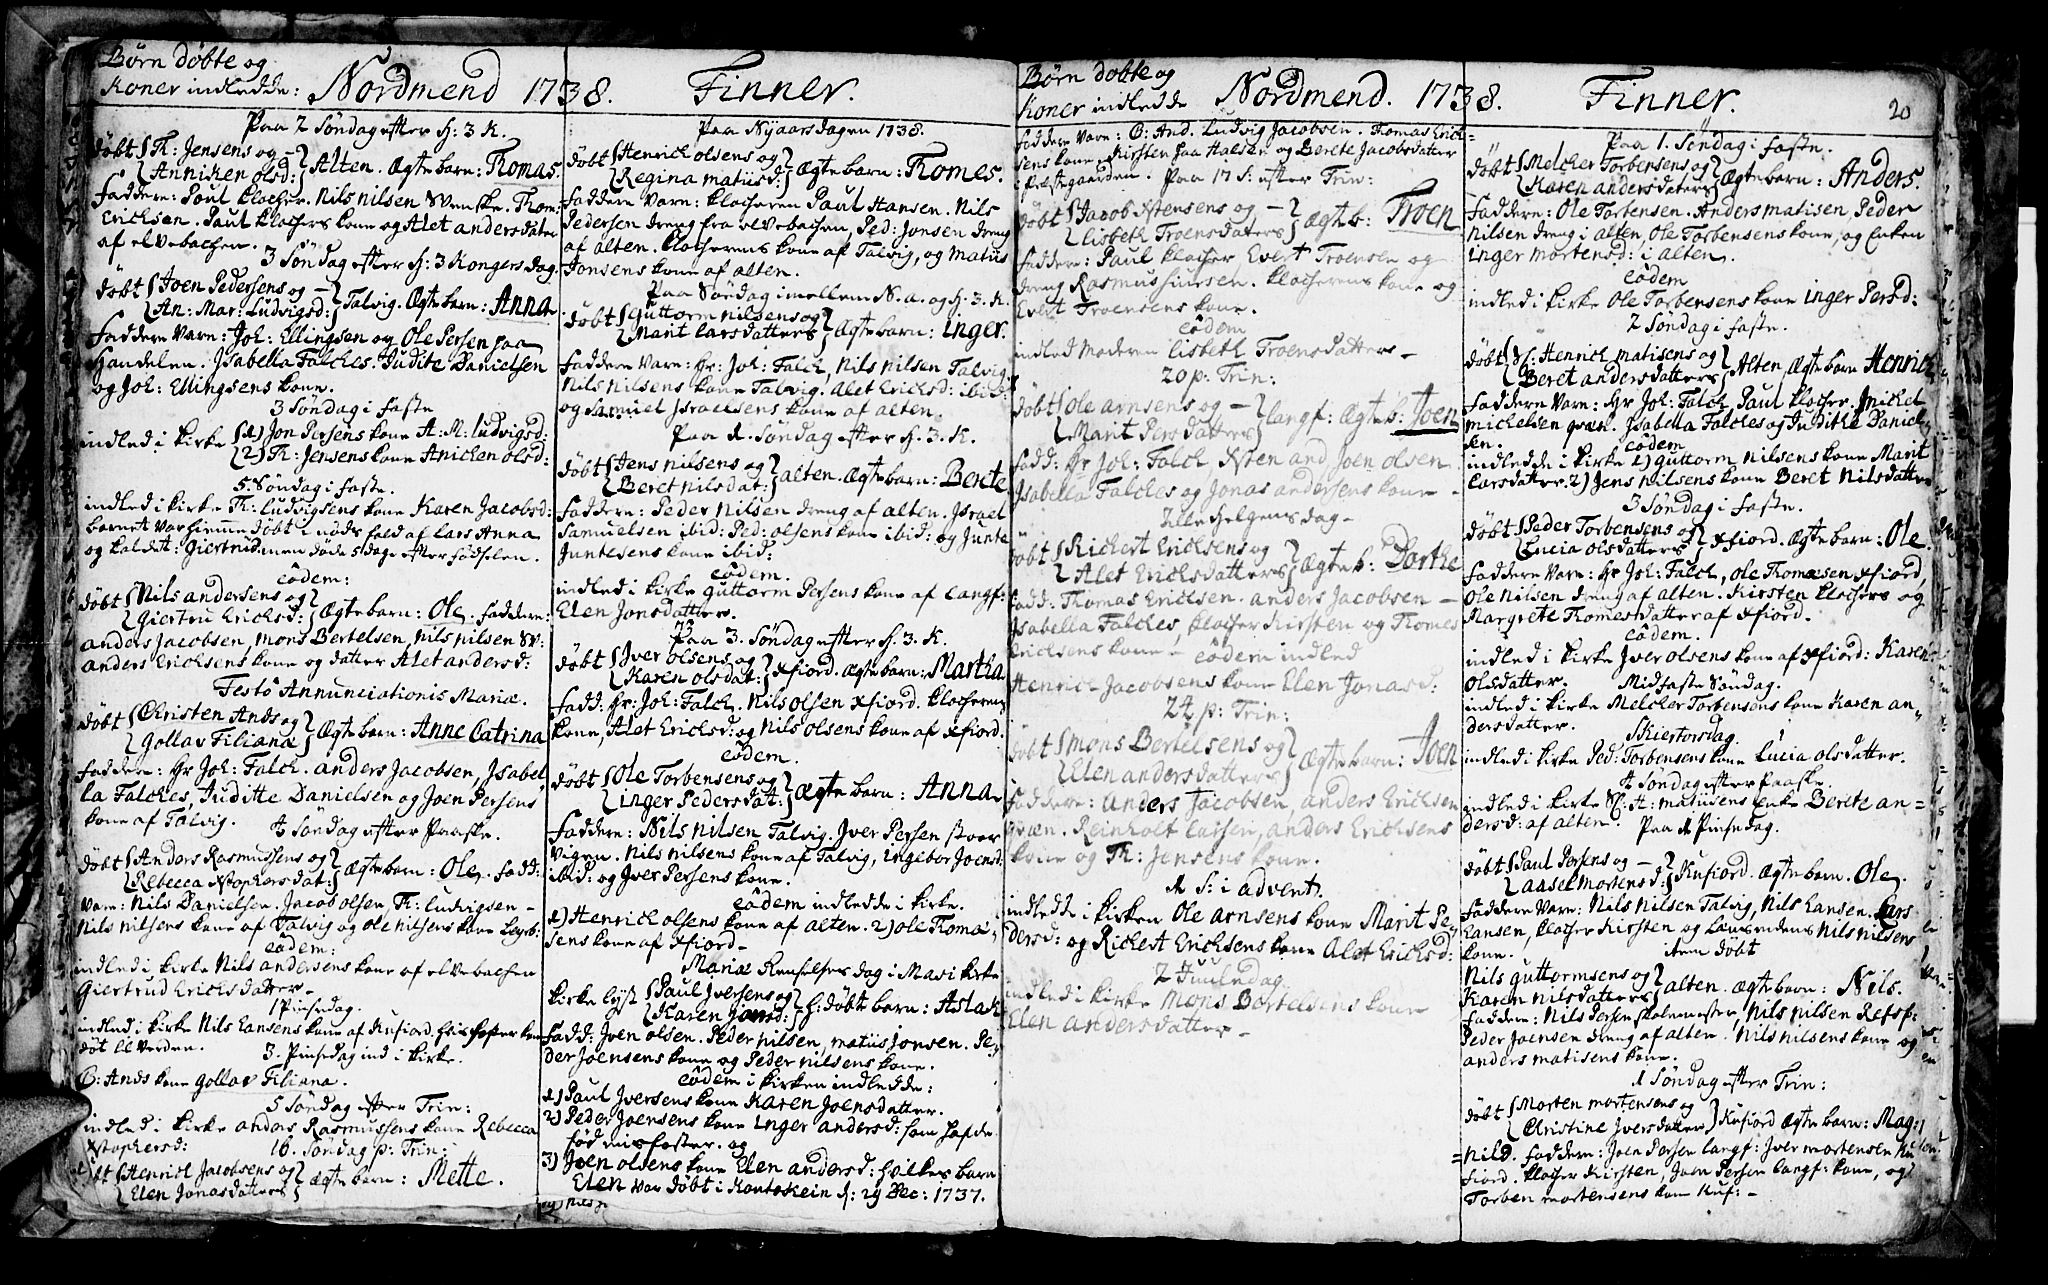 Børn døbte og
Koner indledde: Nordmend 1738.
Paa 2 Søndag efter H: 3 K.
døbt {Th: Jensens og
{Anniken olsd:} Alten. Ægte barn: Thomas.
Faddere: Poul Klocher. Nils Nilsen Svenske. Thom:
Erichsen. Paul Klochers kone og Alet andersdater
af elvebachen.
3 Søndag efter H: 3 Kongers dag.
døbt {Joen Pedersens og
{An: Mar: Ludvigsd:} Talvig. Ægte barn: Anna
Faddere Vare: Joh: Ellingsen og Ole Persen paa
Handelen. Jsabella Falches. Judite Danielsen
og Joh: Ellingsens kone.
3 Søndag i faste
indled i kirke {1) Jon Persens kone A: M: ludvigsd:
{2) Th: Jensens kone Anichen olsd:
5 Søndag i faste.
indled i kirke Th: ludvigsens kone Karen Jacobsd:
barnet var hiemme døbt i nøds fald af lars Anna
og kaldet: Giertrud men døde 5 dage efter fødselen.
eôdem:
døbt {Nils andersens og
{Giertru Erichsd:} Ægte barn: Ole. faddere:
anders Jacobsen, Mons Bertelsen, Nils Nilsen Sv:
anders Erichsens kone og datter Alet andersd:
Festô Annunciationis Mariæ.
døbt {Christen Ands og
{Gollav Filiana} Ægte barn: Anne Catrina
faddere: Hr Joh: Falch. anders Jacobsen, Jsabel
la Falches, Juditte Danielsen og Joen Persens
kone af Talvig.
4 Søndag efter Paaske.
døbt {Anders Rasmussens og
{Rebecca Xstophersdat:} Ægte barn: Ole. fadd:
var: Nils Danielsen. Jacob olsen Th: ludvigsen
Nils Nilsens kone af Talvig og ole nilsens kone
eôdem:
indled i kirke Nils andersens kone af elvebachen
Giertrud Erichsdatter
1 Pinsedag.
indled i kirke Nils Hansens kone af Kufiord.
døt til verden. 3. Pinsedag ind i kirke.
C: Ands kone gollav Filiana.
5 Søndag efter Trin:
indled i kirke anders Rasmussens kone Rebecca
Xstophersd:
16. Søndag p: Trin:
døbt {Henrich Jacobsens og
{Elen Jonasdatters} Ægte barn: Mette.

Finner.
Paa Nyaarsdagen 1738.
døbt {Henrich olsens og
{Regina matiisd:} Ægte barn: Thomes.
Faddere Vare: Klocheren Paul Hansen. Nils
Pedersen dreng fra elvebachen, Ped: Jonsen dreng
af alten. Klocherens kone af Talvig, og matiis
Jonsens kone af alten.
Paa Søndag imellem N. a. og H: 3. K.
døbt {Guttorm nilsens og
{Marit Larsdatters} Ægte barn: inger.
Faddere Vare: Hr: Joh: Falch, Nils nilsen Talvig
Nils Nilsens kone Talvig. Alet Erichsd: ibid:
og Samuel Jsraelsens kone af alten.
Paa 1. Søndag efter H: 3. K.
døbt {Jens nilsens og
{Beret nilsdat:} alten. Ægte barn: Berete
Faddere: Peder Nilsen dreng af alten. Jsrael
Samuelsen ibid: Ped: olsens kone ibid: og Junte
Juntesens kone ibid:
eôdem.
indled i kirke guttorm Persens kone af Langf:
Elen Jonsdatters.
Paa 3. Søndag efter H: 3. K.
døbt {Jver olsens og
{Karen olsdat:} Xfiord. Ægte barn: Martha
fadd: Hr: Joh: Falch. Nils olsen Xfiord. Klocherens
kone, Alet Erichsd: og Nils olsens kone af Xfiord.
eôdem.
døbt {Ole Torbensens og
{inger Pedersdat:} Ægte barn: Anna
faddere: Nils nilsen Talvig. Jver Persen stoer
vigen. Nils nilsens kone af Talvig, ingebor Joensd:
ibid: og Jver Persens kone.
eôdem indledde i kirke.
1) Henrich olsens kone af alten. 2) ole Thoma
sens kone af Xfiord
Mariæ Renselses dag i Masi kirke
kirke lyst {Paul Jversens og
{Karen Jonsd:} H: døbt barn: Aslak
fadd: Joen olsen. Peder nilsen, matiis Jonsen. Pe
der Joensens kone og Peder nilsens kone.
eôdem i kirken indledde:
1) Paul Jversens kone Karen Joensdatter.
2) Peder Joensens kone inger andersd: som hafde
fød misfoster. og
3) Joen olsens kone Elen andersd: hvilkes barn
Elen var døbt i Koutokein d: 29 Dec: 1737.

Børn døbte og
Koner indledde Nordmend. 1738.
Faddere Vare: C: And. Ludvig Jacobsen. Thomas Erich
sens kone. Kirsten paa Halsen og Berete Jacobsdatter
i Prestgaarden. Paa 17 S: efter Trin:
døbt {Jacob Xstensens og
{Lisbeth Troensdatters} Ægte b: Troen
faddere: Paul Klocher Evert Troensen og
dreng Rasmus Juersen. Klocherens kone og
Evert Troensens kone.
eôdem
indled Moderen Lisbeth Troensdatters
20 p: Trin:
døbt {Ole arnsens og
{Marit Persdatters} langf: Ægte b: Joen
fadd: Hr Joh: Falch, Xsten and, Joen olsen
Jsabella Falches og Jonas andersens kone
Alle Helgens dag
døbt {Richert Erichsens og
{Alet Erichsdatters} Ægte b: Dorthe
fadd. Thomas Erichsen. anders Jacobsen
Jsabella Falches, Klocher Kirsten og Thomes
Erichsens kone
eôdem indled
Henrich Jacobsens kone Elen Jonasd:
24 p: Trin:
døbt {Mons Bertelsens og
{Elen andersdatters} Ægte barn: Joen
faddere: Anders Jacobsen, anders Erichsen
qvæn. Reinholt Larsen, anders Erichsens
kone og Th: Jensens kone.
1 S: i advent.
indledde i kirken Ole arnsens kone Marit Pe
dersd: og Richert Erichsens kone Alet Erichsd:
2 Juuledag
indled i kirke Mons Bertelsens kone
Elen andersdatter

Finner. 20
Paa 1. Søndag i faste.
døbt {Melcher Torbensens og
{Karen andersdaters} Ægte barn: Anders.
Faddere: Ole Torbensen. Anders matisen, Peder
Nilsen dreng i alten, Ole Torbensens kone, og Enken
inger mortensd: i alten.
eôdem
indled i kirke Ole Torbensens kone inger Persd:
2 Søndag i faste.
døbt {Sl: Henrich matisens og
{Beret andersdatters} Alten, Ægte barn Henrich
faddere Vare: Hr Joh: Falch, Paul Klocher, Michel
michelsen qvæn. Jsabella Falches og Judithe Daniel
sen. eôdem
indledde i kirke 1) guttorm Nilsens kone Marit
Larsdatter. 2) Jens Nilsens kone Beret Nilsdatter
3 Søndag i faste.
døbt {Peder Torbensens og
{Lucia olsdatters} Xfiord. Ægte barn: Ole.
faddere Vare: Hr Joh: Falch, Ole Thomæsen Xfiord,
Ole Nilsen dreng af alten. Kirsten Klochers og
Margrete Thomesdatter af Xfiord.
eôdem.
indled i kirke Jver olsens kone af Xfiord: Karen
Olsdatter. Midfaste Søndag.
indled i kirke Melcher Torbensens kone Karen an
dersdatter.
Skiertorsdag
indled i kirke Ped: Torbensens kone Lucia olsdatter.
4 Søndag efter Paaske.
indled i kirke Sl: H: matiisens enke Berete an=
dersd: af alten.
Paa 1 Pinsedag.
døbt {Paul Persens og
{aasel mortensd:} Kufiord. Ægte barn. Ole.
faddere Vare: Nils Nilsen Talvig, Nils Hansen. Lars
Hansen, Klocher Kirsten og Nils Nilsens
kone. item døbt
Nils guttormsens og
Karen Nilsdatters} alten. Ægte barn: Nils.
faddere: Nils Persen skolemester, Nils Nilsen Refsf:
Peder Joensen dreng af alten. Nils Nilsens kone og
anders matisens kone.
1 Søndag efter Trin:
døbt {Morten mortensens og
{Christine Jversdatter} Kufiord Ægte barn: Mag:
=nild. faddere: Joen Persen langf: Jver mortensen Ku
fiord. Klocher Kirsten, Joen Persen langf: kone, og
Torben mortensens kone Kuf: